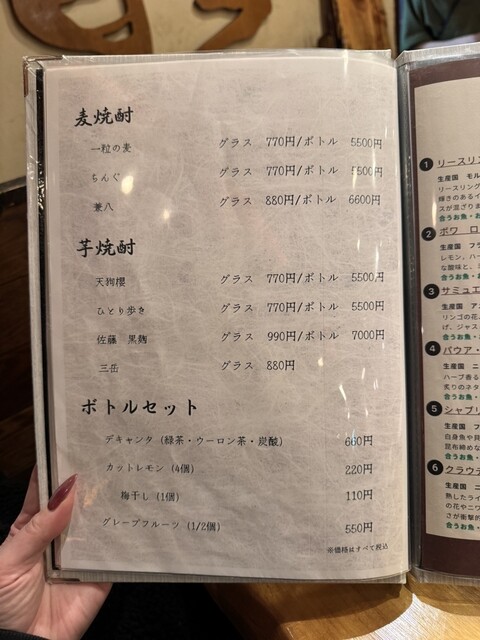 麦焼酎
一粒の麦 グラス 770円/ボトル 5500円
ちんぐ グラス 770円/ボトル 5500円
兼八 グラス 880円/ボトル 6600円
芋焼酎
天狗櫻 グラス 770円/ボトル 5500円
ひとり歩き グラス 770円/ボトル 5500円
佐藤 黒麹 グラス 990円/ボトル 7000円
三岳 グラス 880円
ボトルセット
デキャンタ(緑茶・ウーロン茶・炭酸) 660円
カットレモン(4個) 220円
梅干し(1個) 110円
グレープフルーツ(1/2個) 550円
※価格はすべて税込
1 リースリン
生産国 モル
リースリング
輝きのあるイ
スが混ざりま
合うお魚・お
2 ボワ ロー
生産国 フラ
レモン、ハー
な酸味と、ミ
合うお魚・
3 サミュエ
生産国 ア
リンゴの花、
げ、ジャス
合うお魚・
4 パウア・
生産国 ニ
ハーブ香る
炙りのネタ
合うお魚・
5 シャブリ
生産国 フ
白身魚や貝
昆布締めな
合うお魚・
6 クラウデ
生産国 ニ
熟したライ
の花やニワ
さが衝撃的
合うお魚・